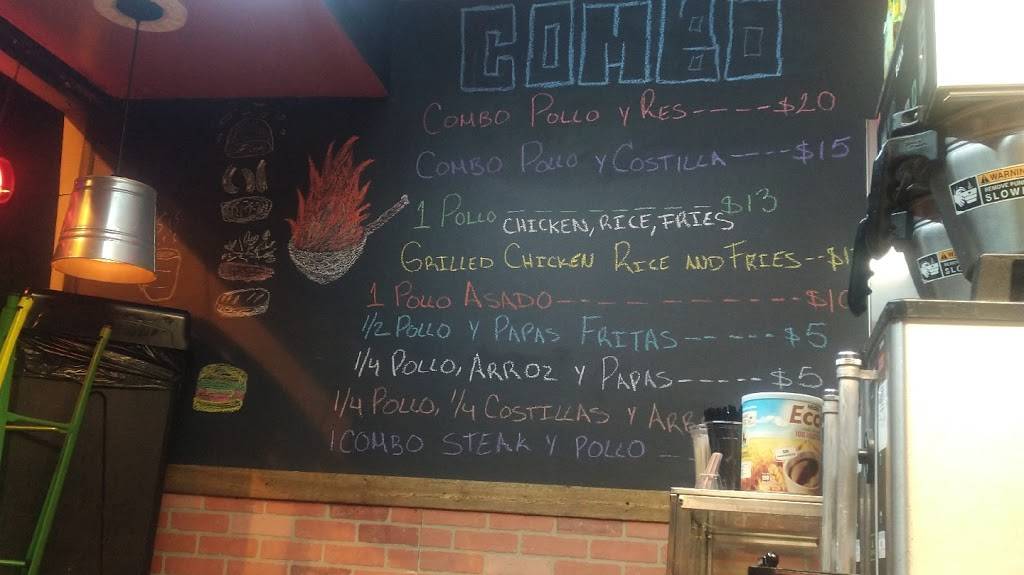 COMBO
COMBO POLLO Y RES----$20
COMBO POLLO Y COSTILLA----$15
1 POLLO ---------$13
CHICKEN, RICE, FRIES
GRILLED CHICKEN RICE AND FRIES--$1
1 POLLO ASADO-----------$10
1/2 POLLO Y PAPAS FRITAS------$5
1/4 POLLO, ARROZ Y PAPAS-----$5
1/4 POLLO, 1/4 COSTILLAS Y ARR
1 COMBO STEAK Y POLLO --
WARNING
SLOWL
Eco